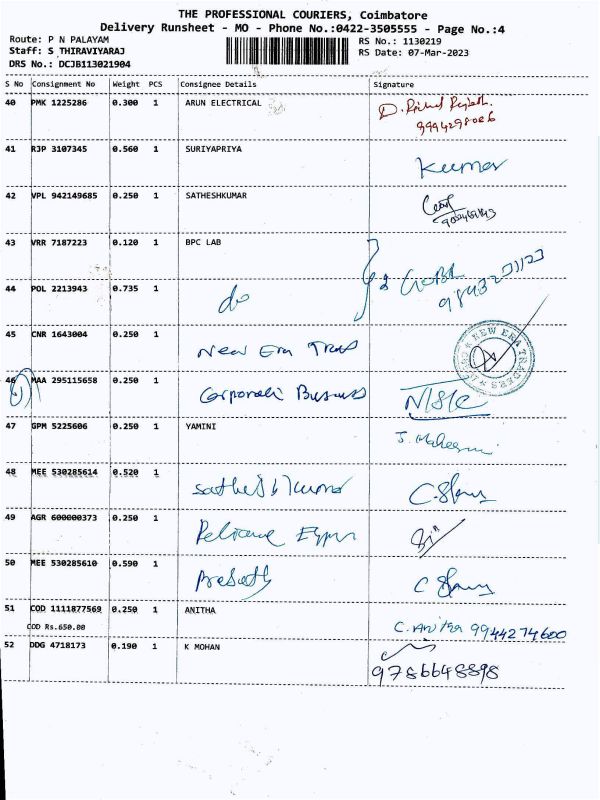 THE PROFESSIONAL COURIERS, Coimbatore
Delivery Runsheet - MO - Phone No.:0422-3505555 - Page No.:4
Route: P N PALAYAM
RS No.: 1130219
Staff: S THIRAVIYARAJ
RS Date: 07-Mar-2023
DRS No.: DCJB113021904
S No Consignment No Weight PCS Consignee Details Signature
40 PMK 1225286 0.300 1 ARUN ELECTRICAL
41 RJP 3107345 0.560 1 SURIYAPRIYA Kumar
42 VPL 942149685 0.250 1 SATHESHKUMAR
43 VRR 7187223 0.120 1 BPC LAB
44 POL 2213943 0.735 1 do
45 CNR 1643004 0.250 1 New Era Trads
NEW ERA TRADERS
46 MAA 295115658 0.250 1 Corporate Business
47 GPM 5225606 0.250 1 YAMINI
48 MEE 530285614 0.520 1
49 AGR 600000373 0.250 1 Reliance
50 MEE 530285610 0.590 1
51 COD 1111877569 0.250 1 ANITHA C. Anitha 9944274600
COD Rs.650.00
52 DDG 4718173 0.190 1 K MOHAN 9786648898